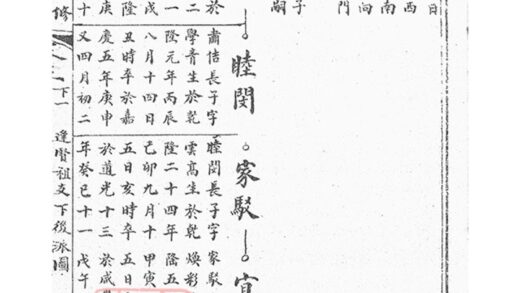 日
西
南
向
門
子
嗣
睦閔
家駁
宣
於
肅佶長子字
二
學青生於乾
隆元年丙辰
戌
八月十四日
隆
丑時卒於嘉
庚
慶五年庚申
十
又四月初二
睦閔長子字
雲高生於乾
隆二十四年
己卯九月十
五日亥時卒
於道光十三
年癸巳十一
家駁
煥彩
隆五
甲寅
五日
於咸
戊午
修
下一
逢賢祖支下後派圖